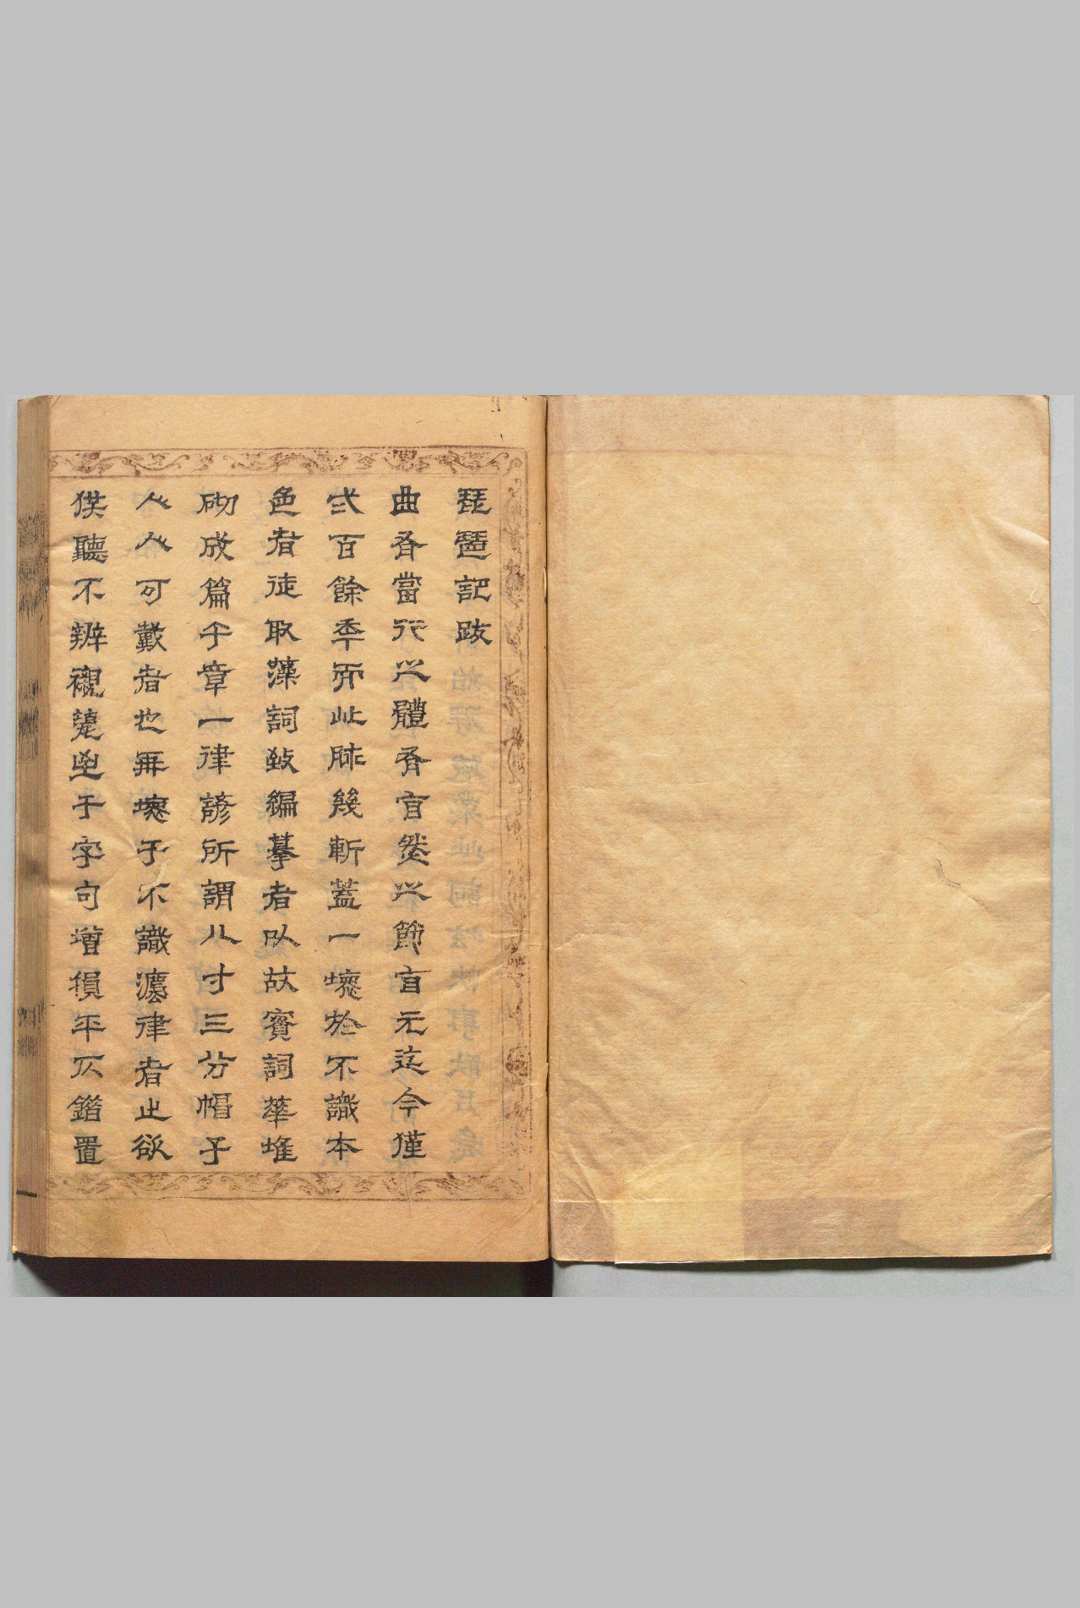 琵琶記跋
曲有當行之體有盲然之節盲元迄今僅
弐百餘季而此脉幾斬蓋一壞於不識本
色者徒取藻詞致編摹者以故實詞華堆
砌成篇千章一律諺所謂八寸三分帽子
人人可戴者也再壞于不識灋律者止欲
供聽不辨襯疊與于字句增損平仄錯置